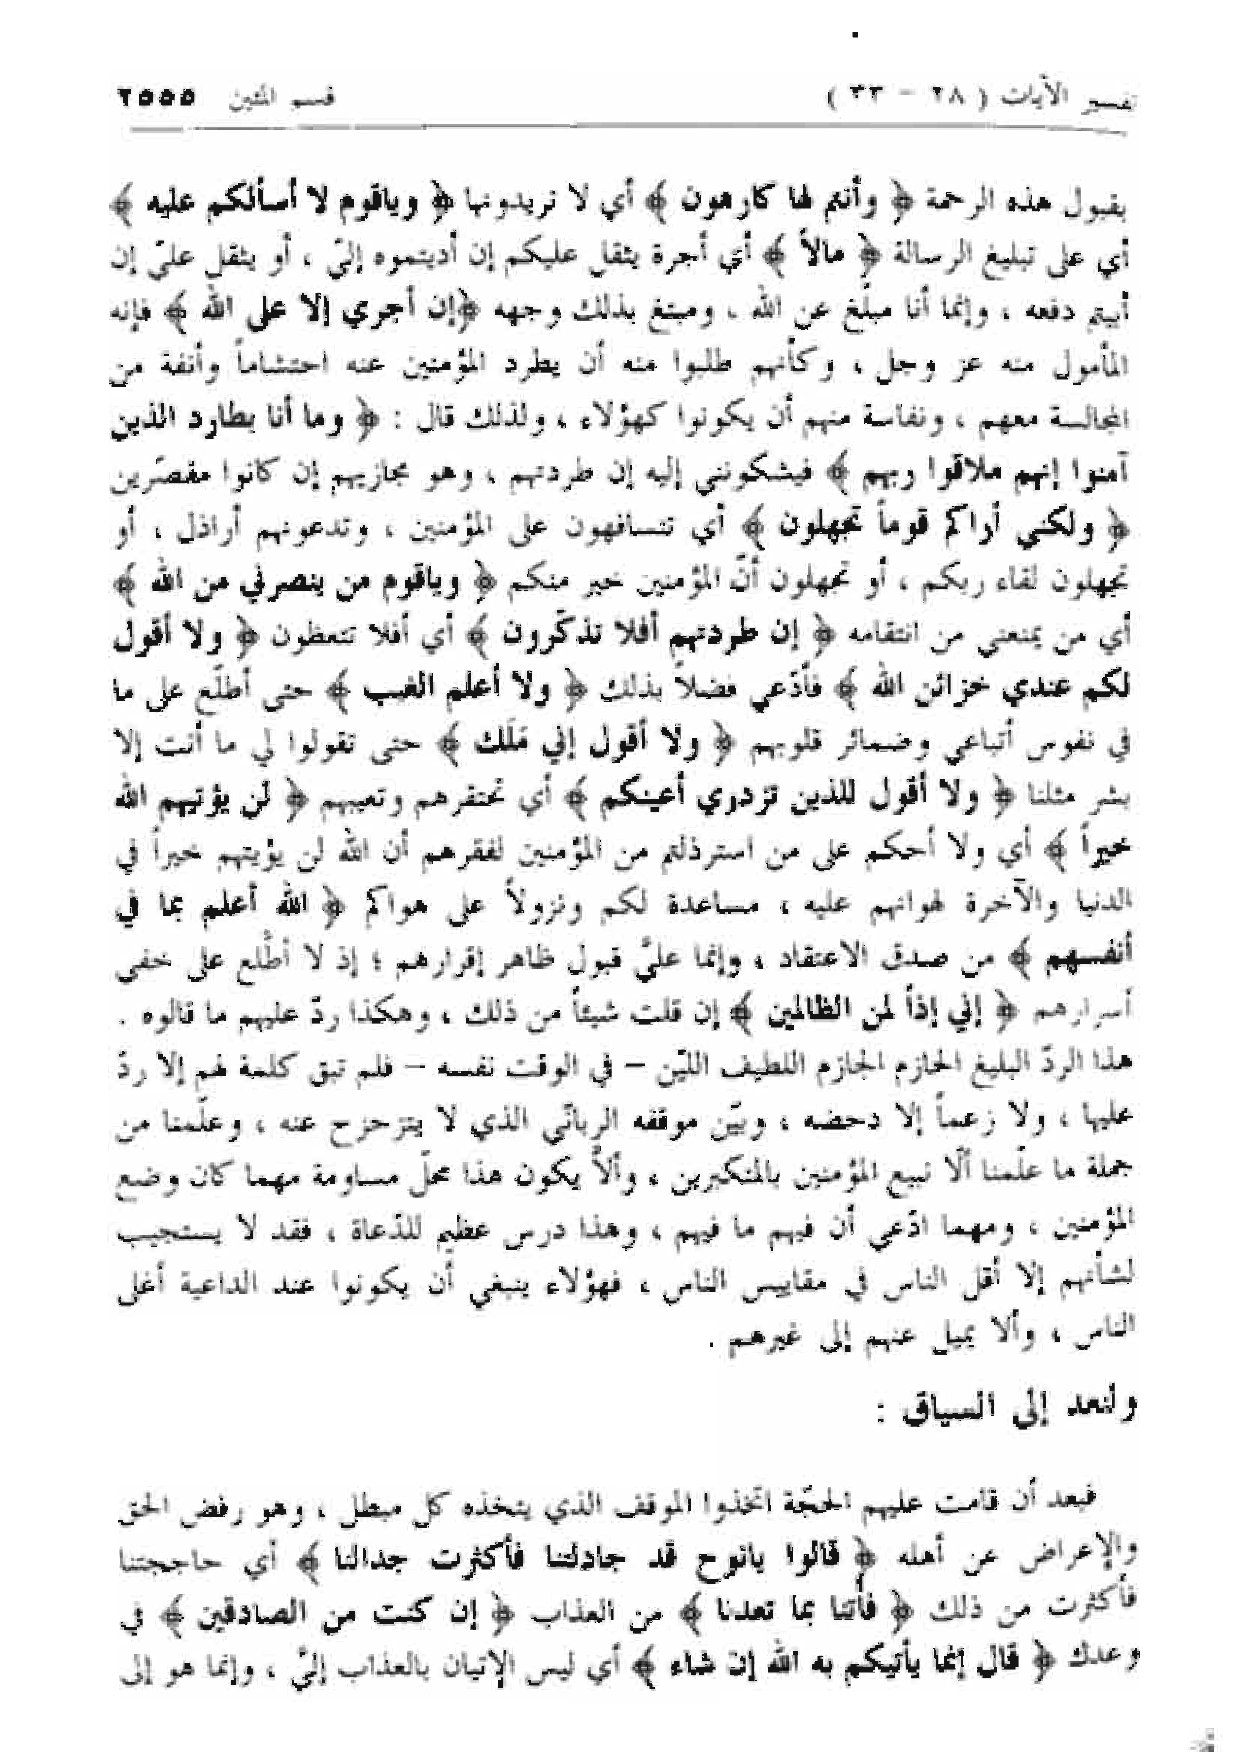 تفسير الآيات ( ٢٨ – ٣٣ ) قسم المئين ٢٥٥٥
بقبول هذه الرحمة ﴿ وأنتم لها كارهون ﴾ أي لا تريدونها ﴿ وياقوم لا أسألكم عليه ﴾
أي على تبليغ الرسالة ﴿ مالاً ﴾ أي أجرة يثقل عليكم إن أديتموه إليّ ، أو يثقل عليّ إن
أبيتم دفعه ، وإنما أنا مبلّغ عن الله ، ومبتغ بذلك وجهه ﴿إن أجري إلا على الله ﴾ فإنه
المأمول منه عز وجل ، وكأنهم طلبوا منه أن يطرد المؤمنين عنه احتشاماً وأنفة من
المجالسة معهم ، ونفاسة منهم أن يكونوا كهؤلاء ، ولذلك قال : ﴿ وما أنا بطارد الذين
آمنوا إنهم ملاقوا ربهم ﴾ فيشكونني إليه إن طردتهم ، وهو مجازيهم إن كانوا مقصّرين
﴿ ولكني أراكم قوماً تجهلون ﴾ أي تتسافهون على المؤمنين ، وتدعونهم أراذل ، أو
تجهلون لقاء ربكم ، أو تجهلون أنّ المؤمنين خير منكم ﴿ وياقوم من ينصرني من الله ﴾
أي من يمنعني من انتقامه ﴿ إن طردتهم أفلا تذكّرون ﴾ أي أفلا تتعظون ﴿ ولا أقول
لكم عندي خزائن الله ﴾ فأدّعي فضلاً بذلك ﴿ ولا أعلم الغيب ﴾ حتى أطلّع على ما
في نفوس أتباعي وضمائر قلوبهم ﴿ ولا أقول إني مَلَك ﴾ حتى تقولوا لي ما أنت إلا
بشر مثلنا ﴿ ولا أقول للذين تزدري أعينكم ﴾ أي تحتقرهم وتعيبهم ﴿ لن يؤتيهم الله
خيراً ﴾ أي ولا أحكم على من استرذلتم من المؤمنين لفقرهم أن الله لن يؤيتهم خيراً في
الدنيا والآخرة لهوانهم عليه ، مساعدة لكم ونزولاً على هواكم ﴿ الله أعلم بما في
أنفسهم ﴾ من صدق الاعتقاد ، وإنما عليَّ قبول ظاهر إقرارهم ؛ إذ لا أطّلع على خفى
أسرارهم ﴿ إني إذاً لمن الظالمين ﴾ إن قلت شيئاً من ذلك ، وهكذا ردّ عليهم ما قالوه .
هذا الردّ البليغ الحازم الجازم اللطيف الليّن – في الوقت نفسه – فلم تبق كلمة لهم إلا ردّ
عليها ، ولا زعماً إلا دحضه ، وبيّن موقفه الربانّي الذي لا يتزحزح عنه ، وعلّمنا من
جملة ما علّمنا ألّا نبيع المؤمنين بالمتكبرين ، وألاّ يكون هذا محلّ مساومة مهما كان وضع
المؤمنين ، ومهما ادّعي أن فيهم ما فيهم ، وهذا درس عظيم للدّعاة ، فقد لا يستجيب
لشأنهم إلا أقل الناس في مقاييس الناس ، فهؤلاء ينبغي أن يكونوا عند الداعية أغلى
الناس ، وألا يميل عنهم إلى غيرهم .
ولنعد إلى السياق :
فبعد أن قامت عليهم الحجّة اتخذوا الموقف الذي يتخذه كل مبطل ، وهو رفض الحق
والإعراض عن أهله ﴿ قالوا يانوح قد جادلتنا فأكثرت جدالنا ﴾ أي حاججتنا
فأكثرت من ذلك ﴿ فأتنا بما تعدنا ﴾ من العذاب ﴿ إن كنت من الصادقين ﴾ في
وعدك ﴿ قال إنما يأتيكم به الله إن شاء ﴾ أي ليس الإتيان بالعذاب إليَّ ، وإنما هو إلى